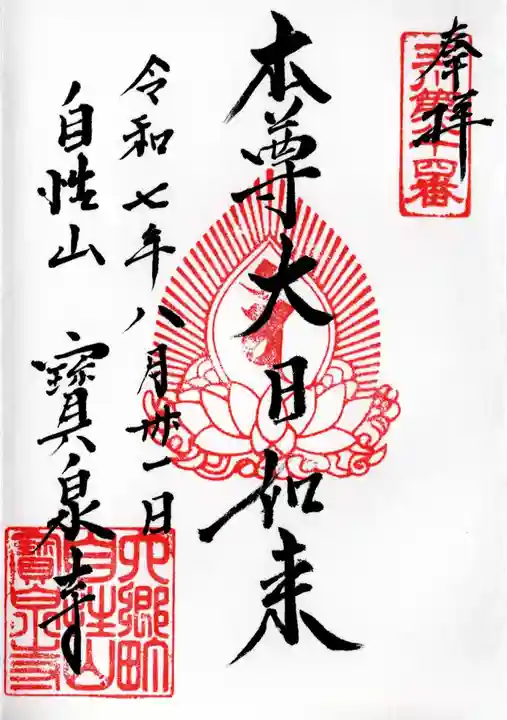 奉拝
第十四番
本尊大日如来
令和七年八月卅一日
自性山 寳泉寺
六郷町
自性山
寳泉寺